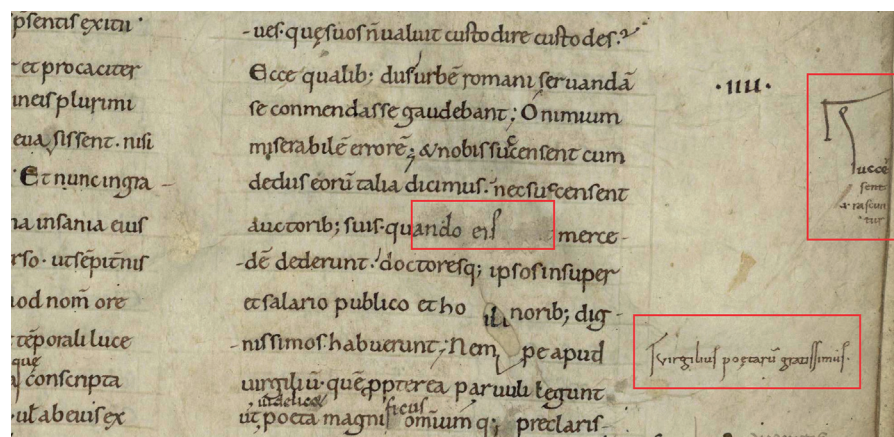 psentis exitu·
et procaciter
ineis plurimi
euasissent · nisi
· Et nunc ingra -
na insania eius
rso · ut sēpit̄nis
uod nom̄ ore
tēporali luce
quę
conscripta
·ul̄ abeuis ex
- ues · quę suos n̄ ualuit custodire custodes.
Ecce qualib; diis urbē romani seruandā
se conmendasse gaudebant; O nimium
miserabilē errorē; & nobis succensent cum
de diis eorū talia dicimus. nec suscensent
auctorib; suis · quando eis merce -
-dē dederunt. doctoresq; ipsos insuper
et salario publico et ho norib; dig -
nissimos habuerunt; Nem pe apud
uirgiliū · quē ppterea paruuli legunt
uidelicet
ut poeta magnificus omīum q; preclaris-
· IIII ·
Succē
sent
a · rascun
tur
Virgilius poetarū grauissimus ·